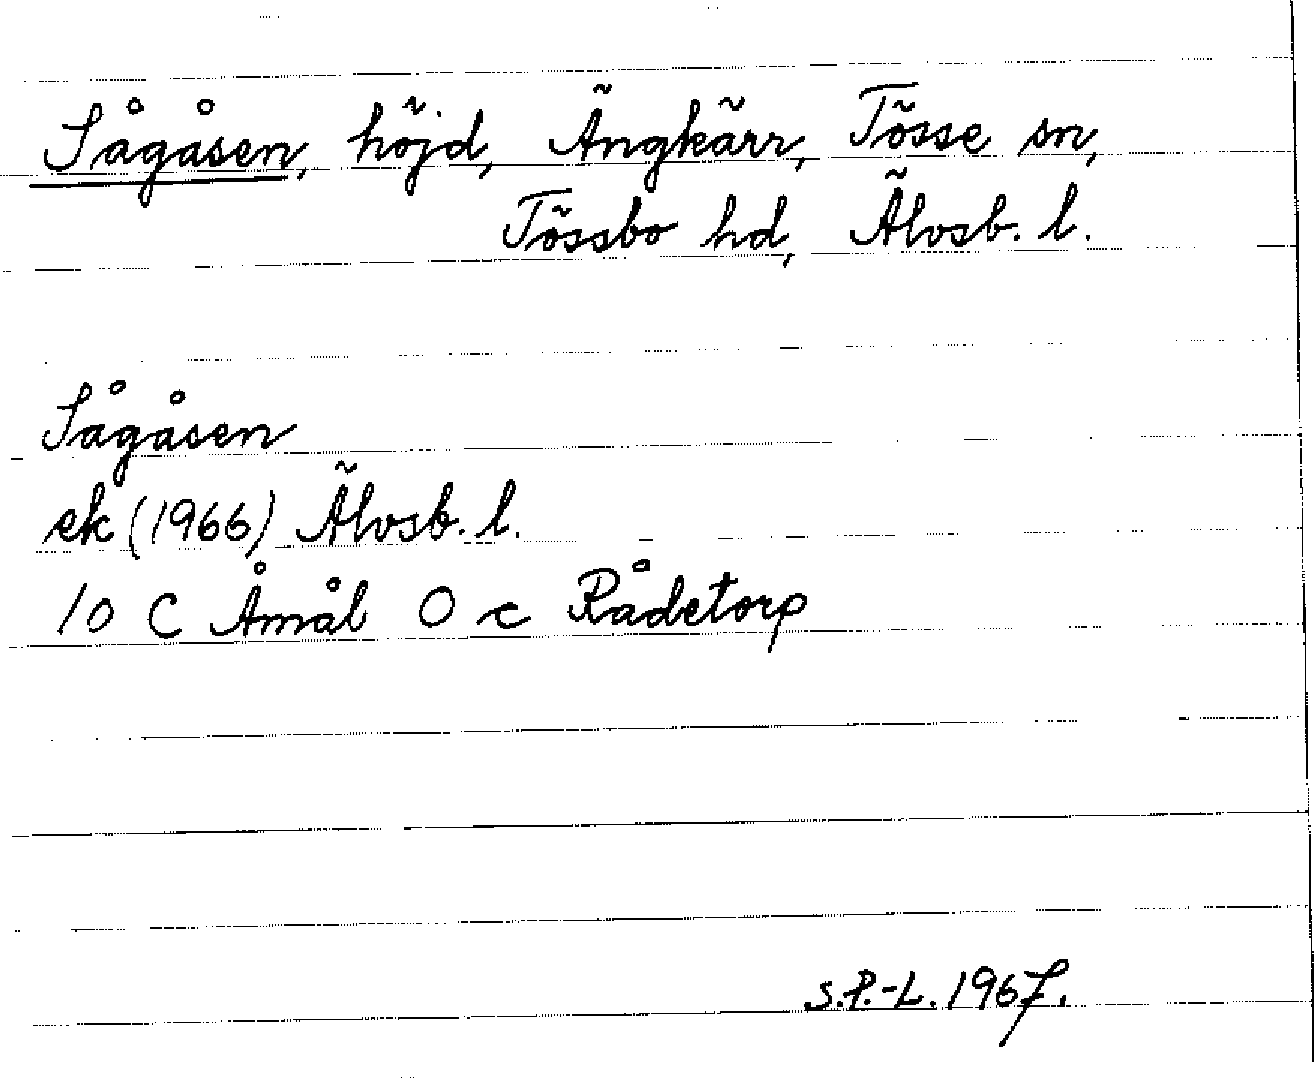 Sågåsen, höjd, Ängkärr, Tösse sn,
Tössbo hd, Älvsb. l.
Sågåsen
ek (1966) Älvsb. l.
10 C Åmål O c Rådetorp
S.P.-L. 1967.